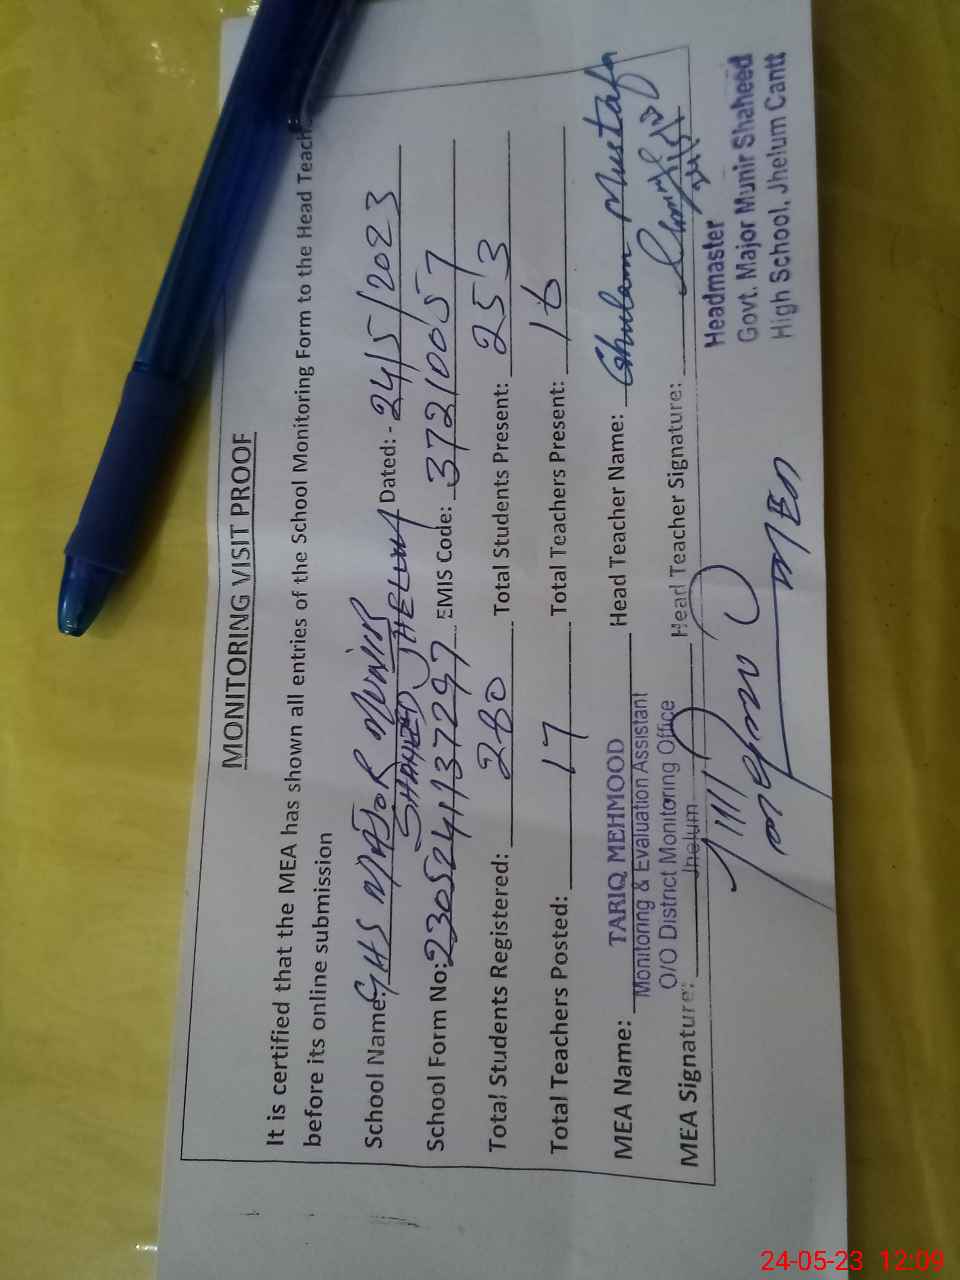 MONITORING VISIT PROOF
It is certified that the MEA has shown all entries of the School Monitoring Form to the Head Teach
before its online submission
School Name: GHS MAJOR MUNIR Dated: - 24/5/2023
SHAHEED JHELUM
School Form No: 2305241137297 EMIS Code: 37210057
Total Students Registered: 280 Total Students Present: 253
Total Teachers Posted: 17 Total Teachers Present: 16
MEA Name: TARIQ MEHMOOD Head Teacher Name: Ghulam Mustafa
Monitoring & Evaluation Assistant
O/O District Monitoring Office
MEA Signature: Jhelum Head Teacher Signature:
Headmaster
Govt. Major Munir Shaheed
High School, Jhelum Cantt
24-05-23 12:09